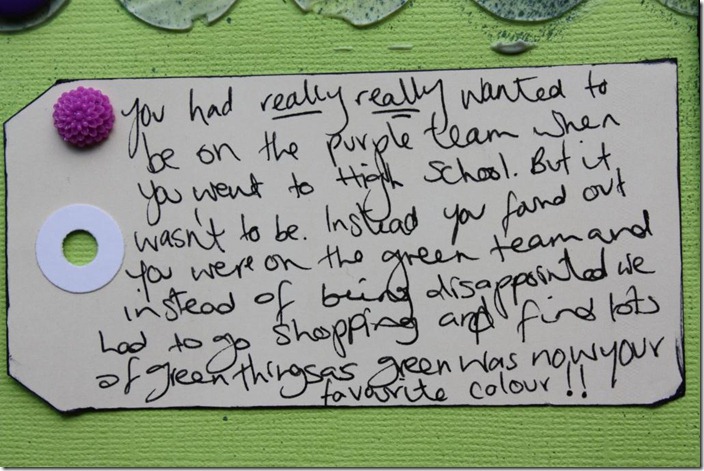 You had really really wanted to
be on the purple team when
you went to High School. But it
wasn't to be. Instead you found out
you were on the green team and
instead of being disappointed we
had to go shopping and find lots
of green things as green was now your
favourite colour!!